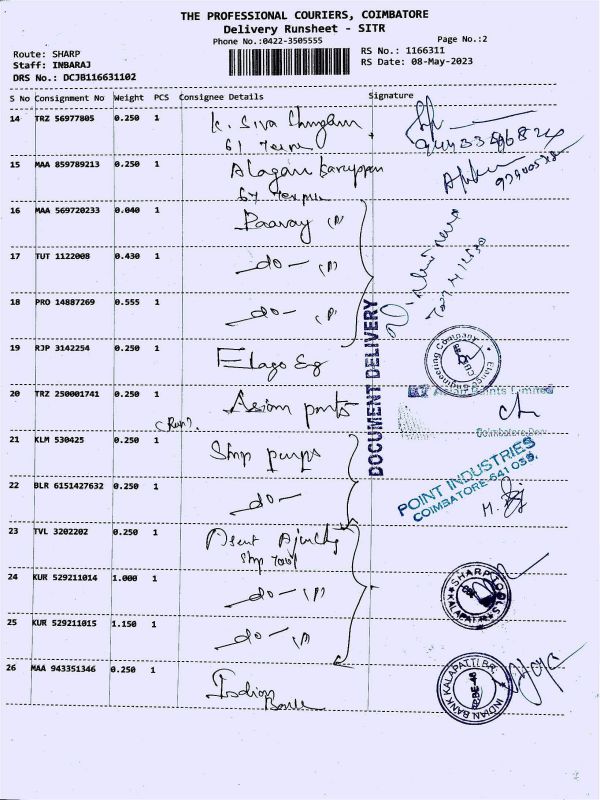 THE PROFESSIONAL COURIERS, COIMBATORE
Delivery Runsheet - SITR
Phone No.:0422-3505555
Page No.:2
Route: SHARP
Staff: INBARAJ
DRS No.: DCJB116631102
RS No.: 1166311
RS Date: 08-May-2023
S No Consignment No Weight PCS Consignee Details Signature
14 TRZ 56977805 0.250 1 K. Siva
61
15 MAA 859789213 0.250 1 Alagan Karuppan
67
16 MAA 569720233 0.040 1 Paavay (P)
17 TUT 1122008 0.430 1 -do- (P)
18 PRO 14887269 0.555 1 -do- (P)
DOCUMENT DELIVERY
19 RJP 3142254 0.250 1 Elago Eg
Engineering Company
20 TRZ 250001741 0.250 1 Asian Paints
Asian Paints Limited
Coimbatore
21 KLM 530425 0.250 1 Shp pumps
22 BLR 6151427632 0.250 1 -do-
POINT INDUSTRIES
COIMBATORE-641 035.
23 TVL 3202202 0.250 1
Shp Tool
24 KUR 529211014 1.000 1 -do- (P)
SHARP TOOLS
KALAPATTI
25 KUR 529211015 1.150 1 -do- (P)
26 MAA 943351346 0.250 1 Indian
Bank
INDIAN BANK KALAPATTI BR.